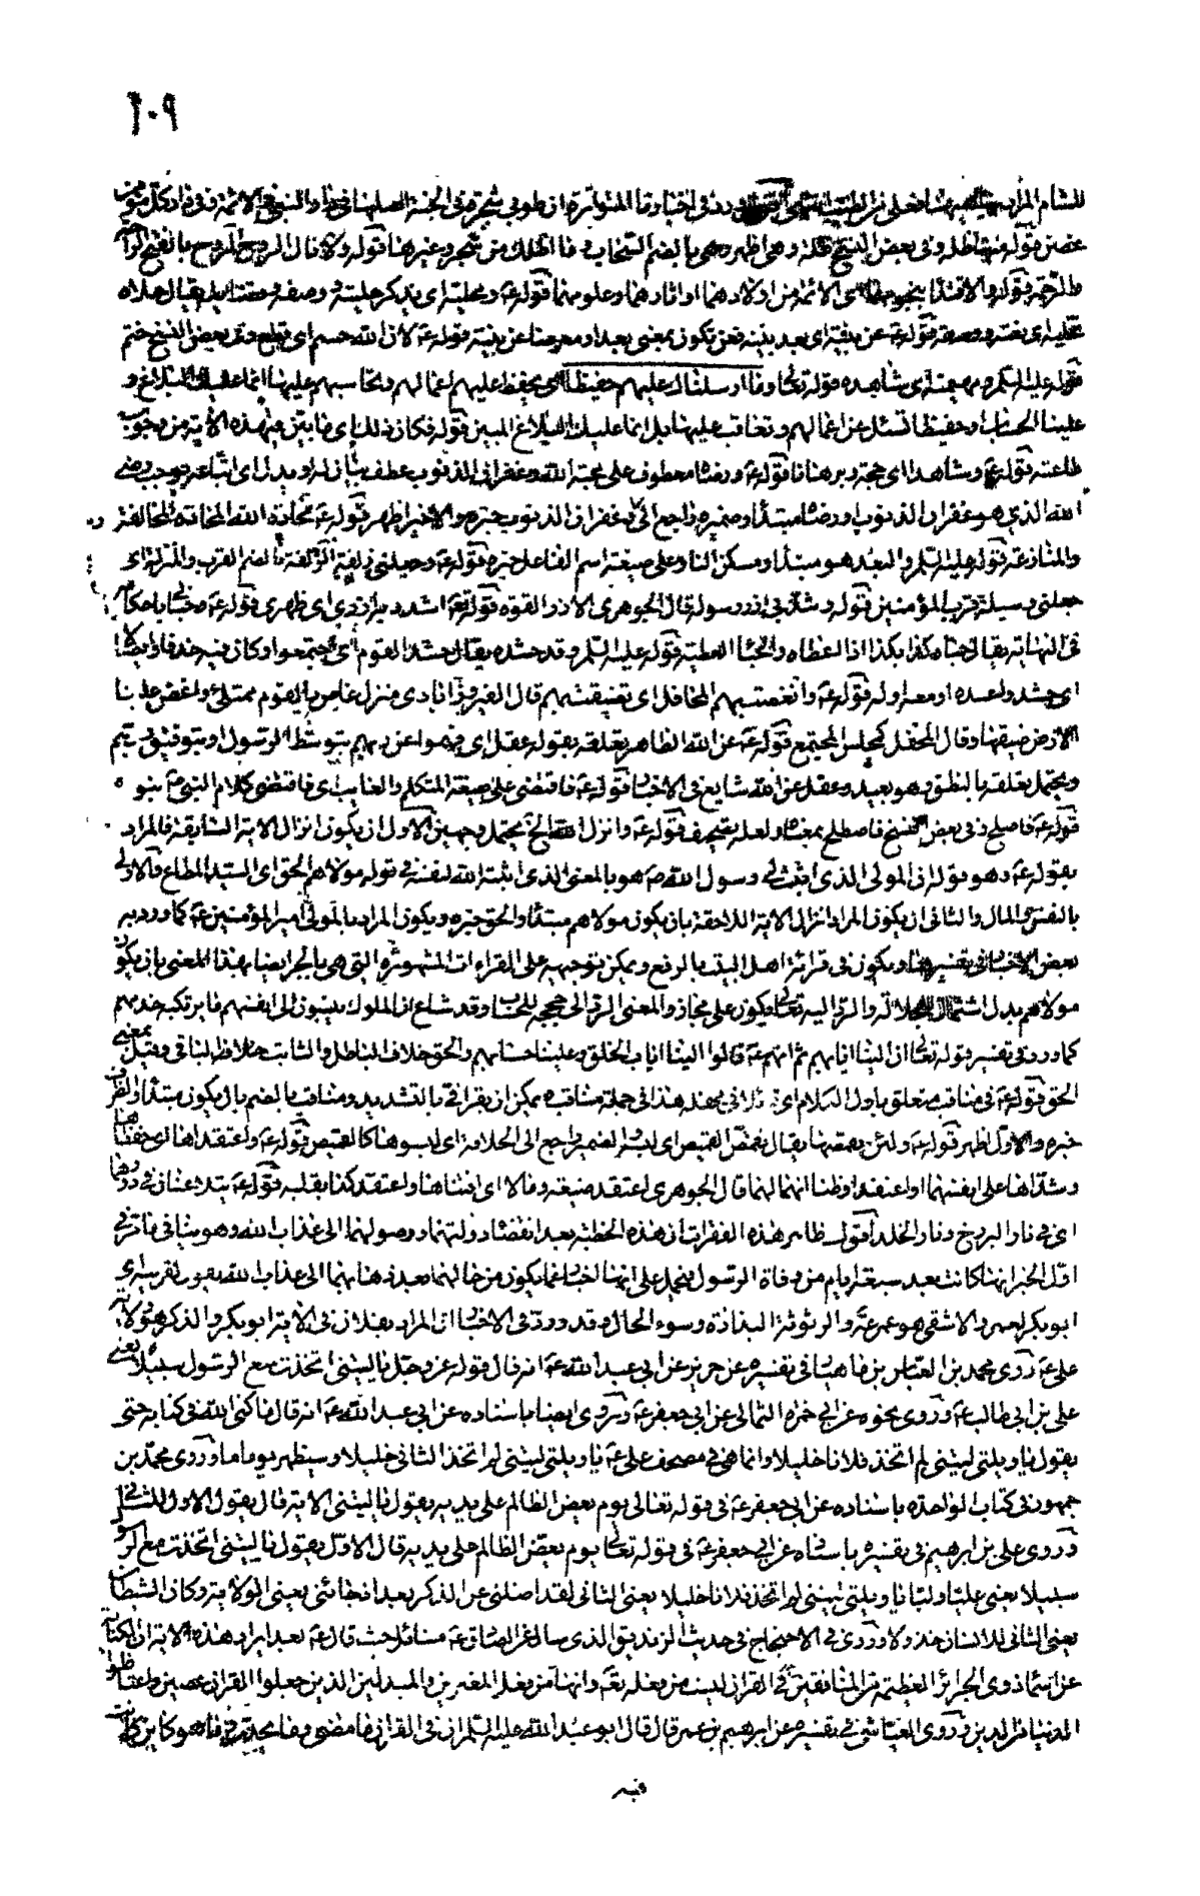 ٢٠٩
غصن قوله فيها ظله وفي بعض النسخ ظلة وهي اظهر وهي بالضم السحاب وما اظلك من شجر وغيرها قوله ولا قال الروح الروح بالفتح الراحة
والرحمة قوله والاقتداء بنجومهما اي الائمة من اولادهما او اثارهما وعلومهما قوله ع ومحليه اي يذكر حليته و وصفه ونعته يقال حلاه
تحلية اي نعته ووصفه قوله ع عن بينة اي بعد بينة فعن تكون بمعنى بعد او معرضا عن بينة قوله ع لان الله حسم اي قطع وفي بعض النسخ ختم
قوله عليه السلم ومهيمنه اي شاهده قوله تعالى وما ارسلناك عليهم حفيظا اي يحفظ عليهم اعمالهم وتحاسبهم عليها انما عليك البلاغ و
علينا الحساب او حفيظا تسئل عن اعمالهم وتعاقب عليها بل انما عليك البلاغ المبين قوله فكان ذلك اي ما بين في هذه الاية من وجوب
طاعته قوله ع وشاهدا اي حجة وبرهانا قوله ع ورضاه معطوف على محبة الله وغفران الذنوب عطف بيان له او بدل اي اتباعه يوجب رضى
الله الذي هو غفران الذنوب او رضاه مبتدأ وضميره راجع الى وغفران الذنوب خبره والاخير اظهر قوله ع محادة الله المحادة المخالفة
والمنازعة قوله عليه السلم والبعد هو مبتدأ ومسكن النار على صيغة اسم الفاعل خبره قوله ع وجعلني زلفة الزلفة بالضم القرب والمنزلة اي
جعلني وسيلة قرب المؤمنين قوله وشد بي ازر رسوله قال الجوهري الازر القوة قوله تعالى اشدد به ازري اي ظهري قوله ع وحباني باحكامه
في النهاية يقال حباه كذا بكذا اذا اعطاه والحباء العطية قوله عليه السلم وقد حشده يقال حشد القوم اي اجتمعوا وكان فيه حذفا وايصالا
اي حشد له او معه اوله قوله ع وانغصت بهم المحافل اي تضيقت بهم قال الفيروزابادي منزل غاص بالقوم ممتلئ واغص علينا
الارض ضيقها وقال المحفل كمجلس المجتمع قوله ع عن الله الظاهر تعلقه بقوله عقل اي فهموا عن ربهم بتوسط الرسول او بتوفيق ربهم
ويحتمل تعلقه بالنطق وهو بعيد وعقل عن الله شايع في الاخبار قوله ع فاقتضى على صيغة المتكلم والغايب اي فاقتضى كلام النبي ص بنبوة
قوله ع فاصلح وفي بعض النسخ فاصطلح بمعناه ولعله تصحيف قوله ع وانزل الله الخ يحتمل وجهين الاول ان يكون انزال الاية السابقة فالمراد
بقوله ع وهو قوله اني المولى الذي اثبت لي رسول الله ص هو بالمعنى الذي اثبته الله لنفسه في قوله مولاهم الحق اي السيد المطاع والاولى
بالنفس والمال والثاني ان يكون المراد انزال الاية اللاحقة بان يكون مولاهم مبتدأ والحق خبره ويكون المراد بالمولى امير المؤمنين ع كما ورد به
بعض الاخبار في تفسيرها ويكون في قرائة اهل البيت بالرفع ويمكن توجيهه على القراءات المشهورة التي هي بالجر ايضا بهذا المعنى بان يكون
مولاهم بدل اشتمال للجلالة والرد اليه تعالى ويكون على مجاز والمعنى الرد الى حججه للحساب وقد شاع ان الملوك ينسبون الى انفسهم ما يرتكبه خدمهم
كما ورد في تفسير قوله تعالى ان الينا ايابهم ثم انهم ع قالوا الينا اياب الخلق وعلينا حسابهم والحق خلاف الباطل والثابت الباقي وقيل بمعنى
الحق قوله ع في مناقب متعلق باول الكلام اي هذا في جملة مناقب ويمكن ان يقرا في بالتشديد ومناقب بالضم بان يكون مبتدأ والظرف
خبره والاول اظهر قوله ع ولئن تقمصها يقال تقمص القميص اي لبسه والضمير راجع الى الخلافة اي لبسوها كالقميص قوله ع واعتقداها اي حفظاها
وشداها على انفسهما او اعتقدا وظنا انهما لهما قال الجوهري اعتقد ضيعة ومالا اي اقتناها واعتقد كذا بقلبه قوله ع يتلاعنان في دورهما
اي في نار البرزخ ونار الخلد اقول ظاهر هذه الفقرات ان هذه الخطبة بعد انقضاء دولتهما ووصولهما الى عذاب الله وهو ينافي ما مر في
اول الخبر انها كانت بعد سبعة ايام من وفاة الرسول فيحمل على انها اخبار عما يكون من حالهما بعد ذهابهما الى عذاب الله يقول لقرينه اي
ابو بكر لعمر والاشقى هو عمر عمر والرثوثة البذاذة وسوء الحال وقد ورد في الاخبار ان المراد بفلان في الاية ابو بكر والذكر هو ولاية
علي ع وروى محمد بن العباس بن ماهيار في تفسيره عن حريز عن ابي عبد الله ع انه قال قوله عز وجل يا ليتني اتخذت مع الرسول سبيلا يعني
علي بن ابي طالب ع وروى نحوه عن ابي حمزة الثمالي عن ابي جعفر ع وروى ايضا باسناده عن ابي عبد الله ع انه قال ما كنى الله في كتابه حتى
يقول يا ويلتى ليتني لم اتخذ فلانا خليلا وانما هي في مصحف علي ع يا ويلتى ليتني لم اتخذ الثاني خليلا وسيظهر يوما ما وروى محمد بن
جمهور في كتاب الواحدة باسناده عن ابي جعفر ع في قوله تعالى يوم يعض الظالم على يديه يقول يا ليتني الاية قال يقول الاول للثاني
وروى علي بن ابرهيم في تفسيره باسناده عن ابي جعفر ع في قوله تعالى يوم يعض الظالم على يديه قال الاول يقول يا ليتني اتخذت مع الرسول
سبيلا يعني عليا وليا يا ويلتى ليتني لم اتخذ فلانا خليلا يعني الثاني لقد اضلني عن الذكر بعد اذ جائني يعني الولاية وكان الشيطان
يعني الثاني للانسان خذولا وروى في الاحتجاج في حديث الزنديق الذي سال عن الصادق ع مسائل حيث قال ع بعد ايراد هذه الاية ان الكناية
عن اسماء ذوي الجرائر العظيمة من المنافقين في القرآن ليست من فعله تعالى وانها من فعل المغيرين والمبدلين الذين جعلوا القرآن عضين واعتاضوا
الدنيا من الدين وروى العياشي في تفسيره عن ابرهيم بن عمر قال قال ابو عبد الله عليه السلم ان في القرآن ما مضى وما يحدث وما هو كائن كانت
فيه